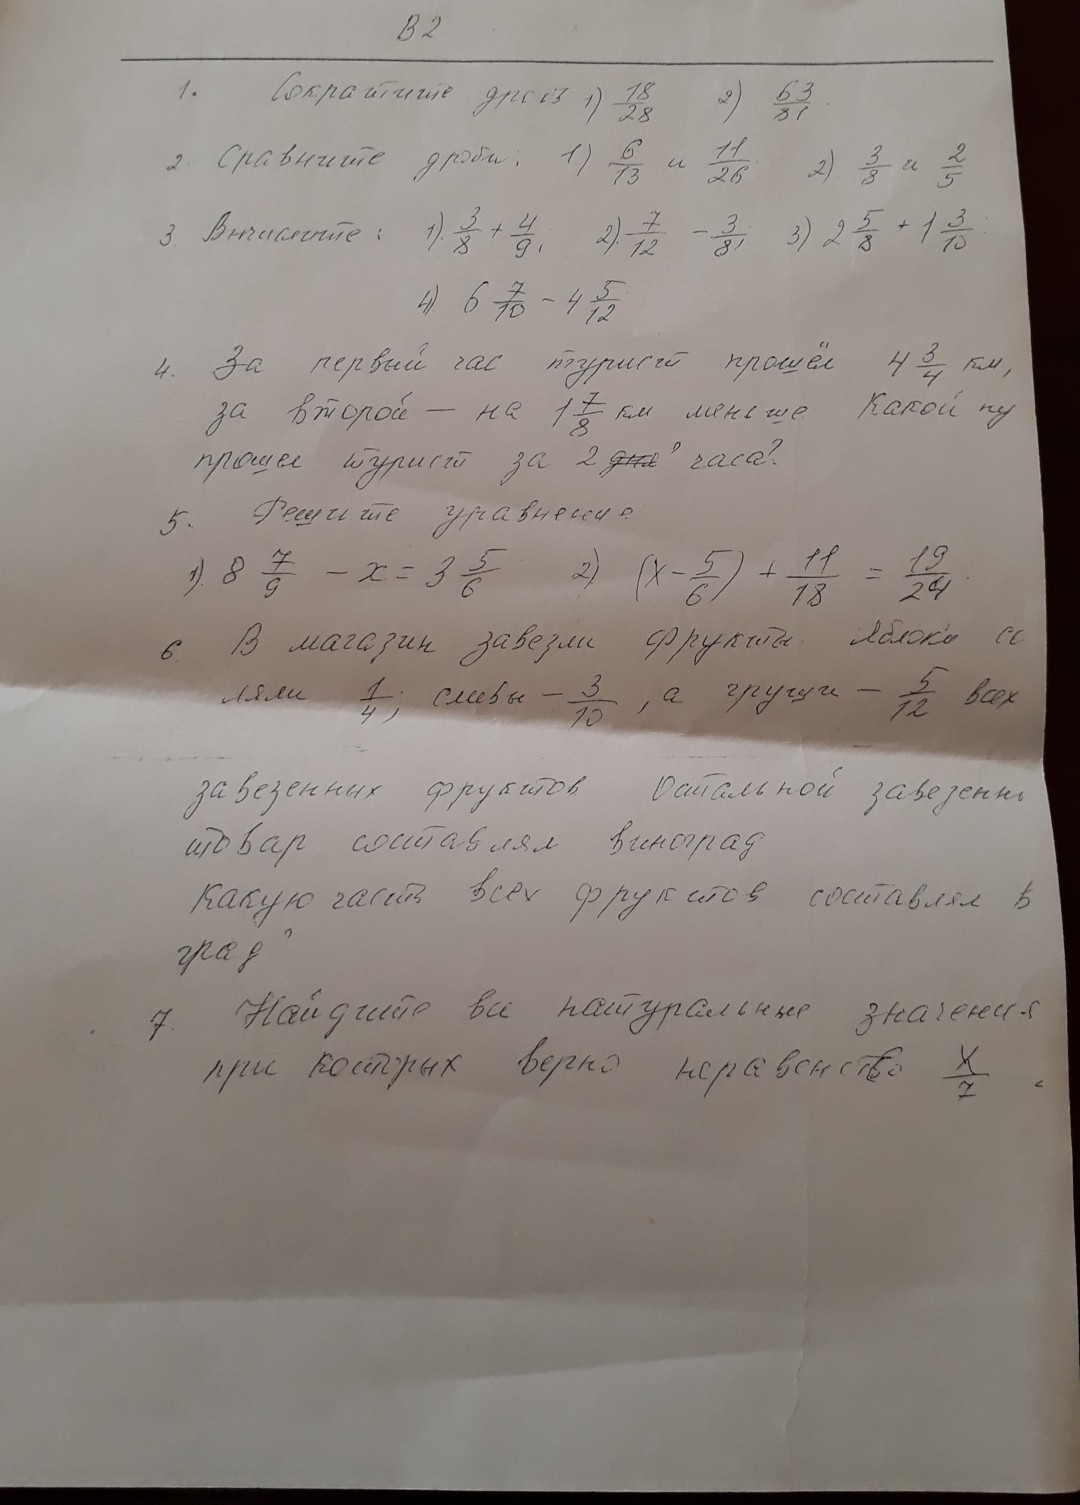 В2
1. Сократите дробь 1) 18/28 2) 63/81
2. Сравните дроби: 1) 6/13 и 11/26 2) 3/8 и 2/5
3. Вычислите: 1). 3/8 + 4/9, 2). 7/12 - 3/8; 3) 2 5/8 + 1 3/10.
4). 6 7/10 - 4 5/12
4. За первый час турист прошёл 4 3/4 км,
за второй – на 1 7/8 км меньше Какой пу
прошел турист за 2 дня? часа?
5. Решите уравнение
1). 8 7/9 - x = 3 5/6 2) (x - 5/6) + 11/18 = 19/24.
6. В магазин завезли фрукты. Яблоки со
ляли 1/4; сливы – 3/10, а груши – 5/12 всех
завезенных фруктов Остальной завезенн
товар составлял виноград
Какую часть всех фруктов составлял в
град?
7. Найдите все натуральные значения
при которых верно неравенство x/7